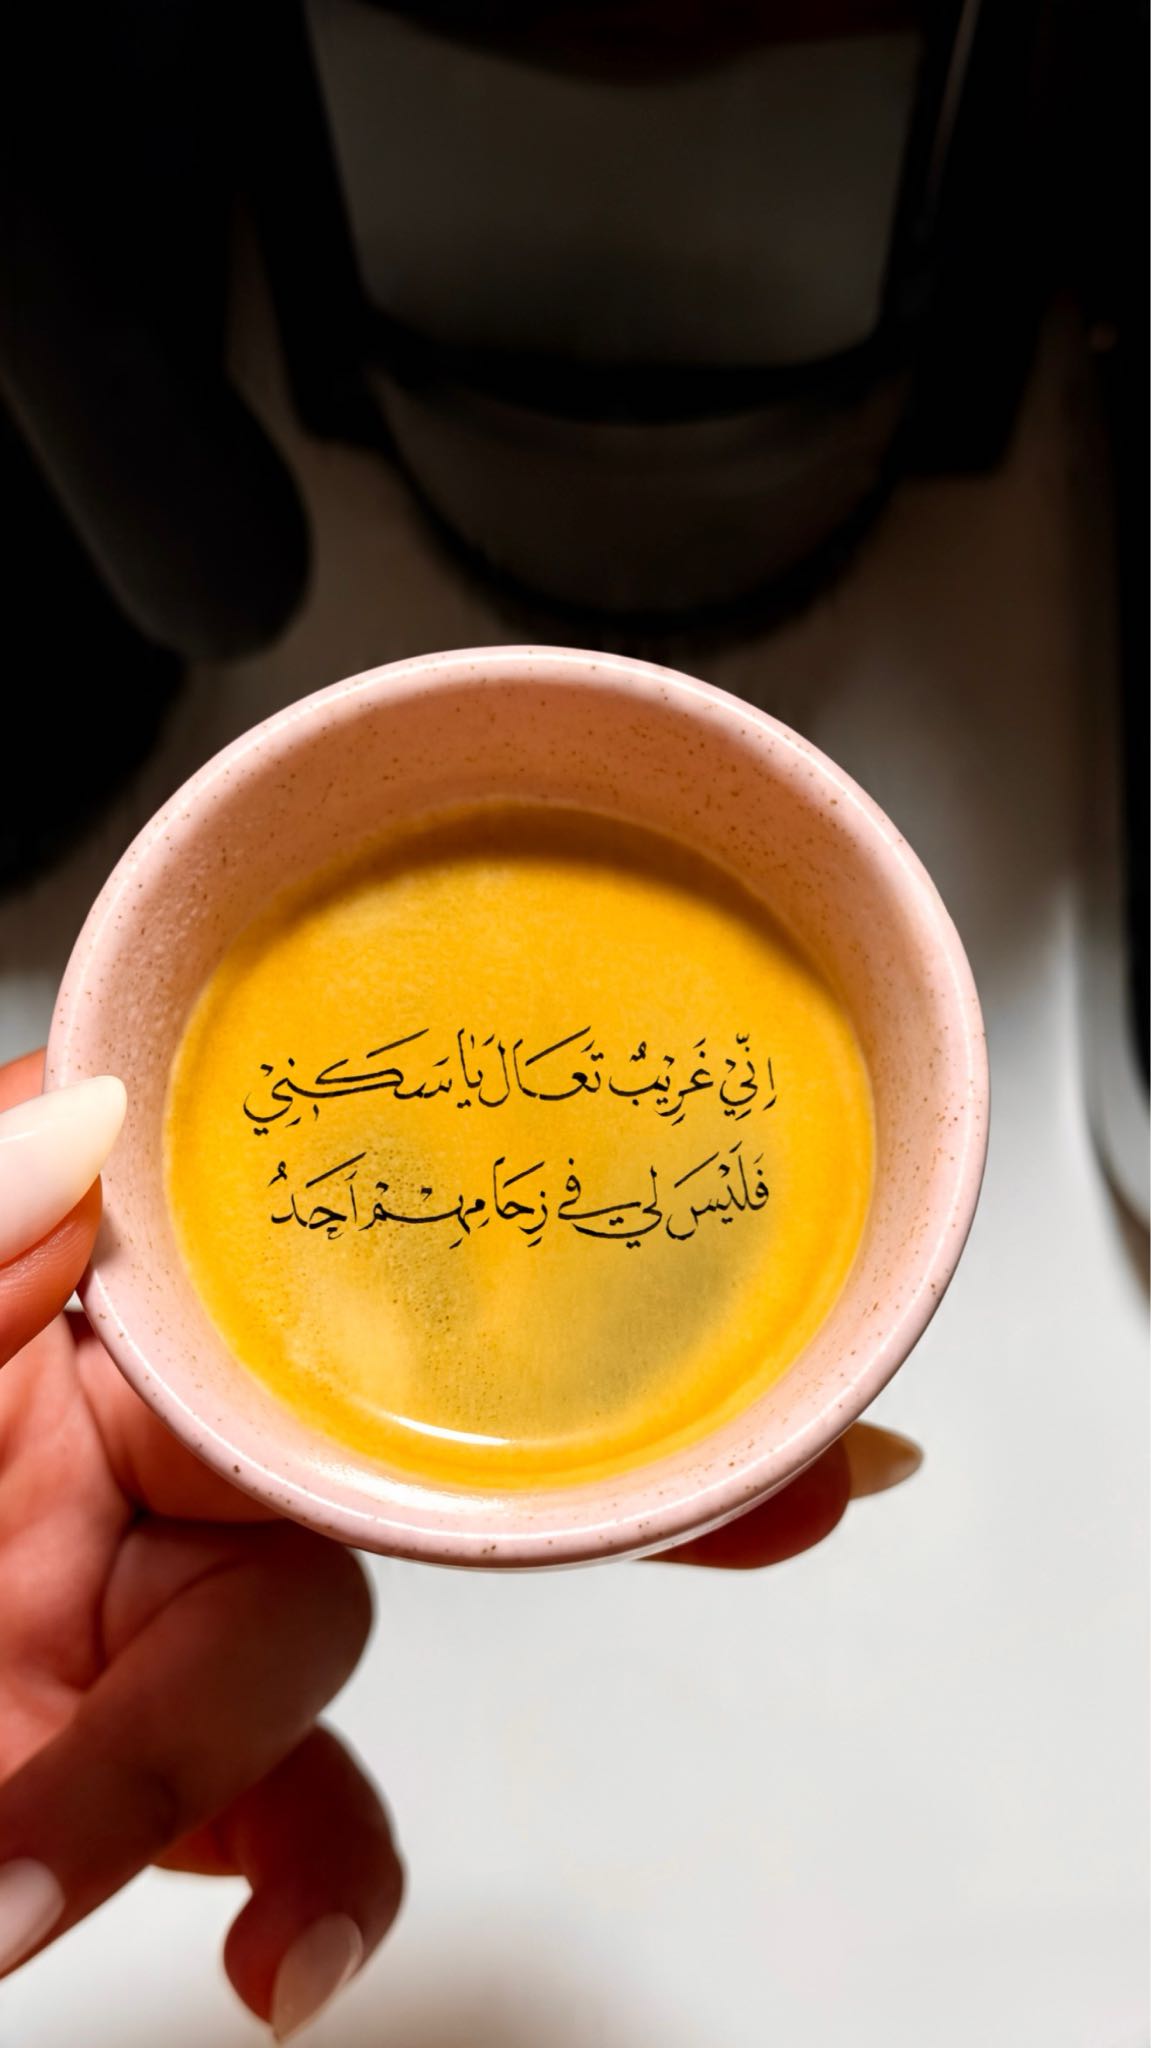 إنّي غَرِيبٌ تَعَالَ يَا سَكَني
فَلَيْسَ لي في زِحَامِهِمْ أَحَدُ